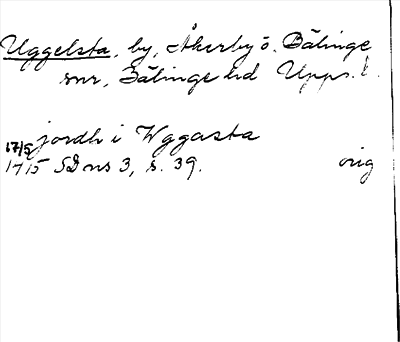 Uggelsta, by, Åkerby o. Bälinge
snr, Bälinge hd Upps. l.
17/5 jordh i Wggasta
1415 SD ns 3, s. 39. orig